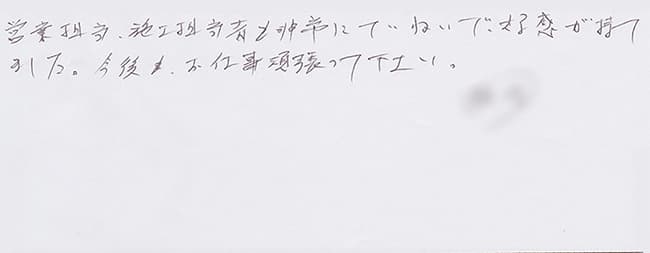 営業担当、施工担当者も非常にていねいで、好感が持て
ました。今後も、お仕事頑張って下さい。